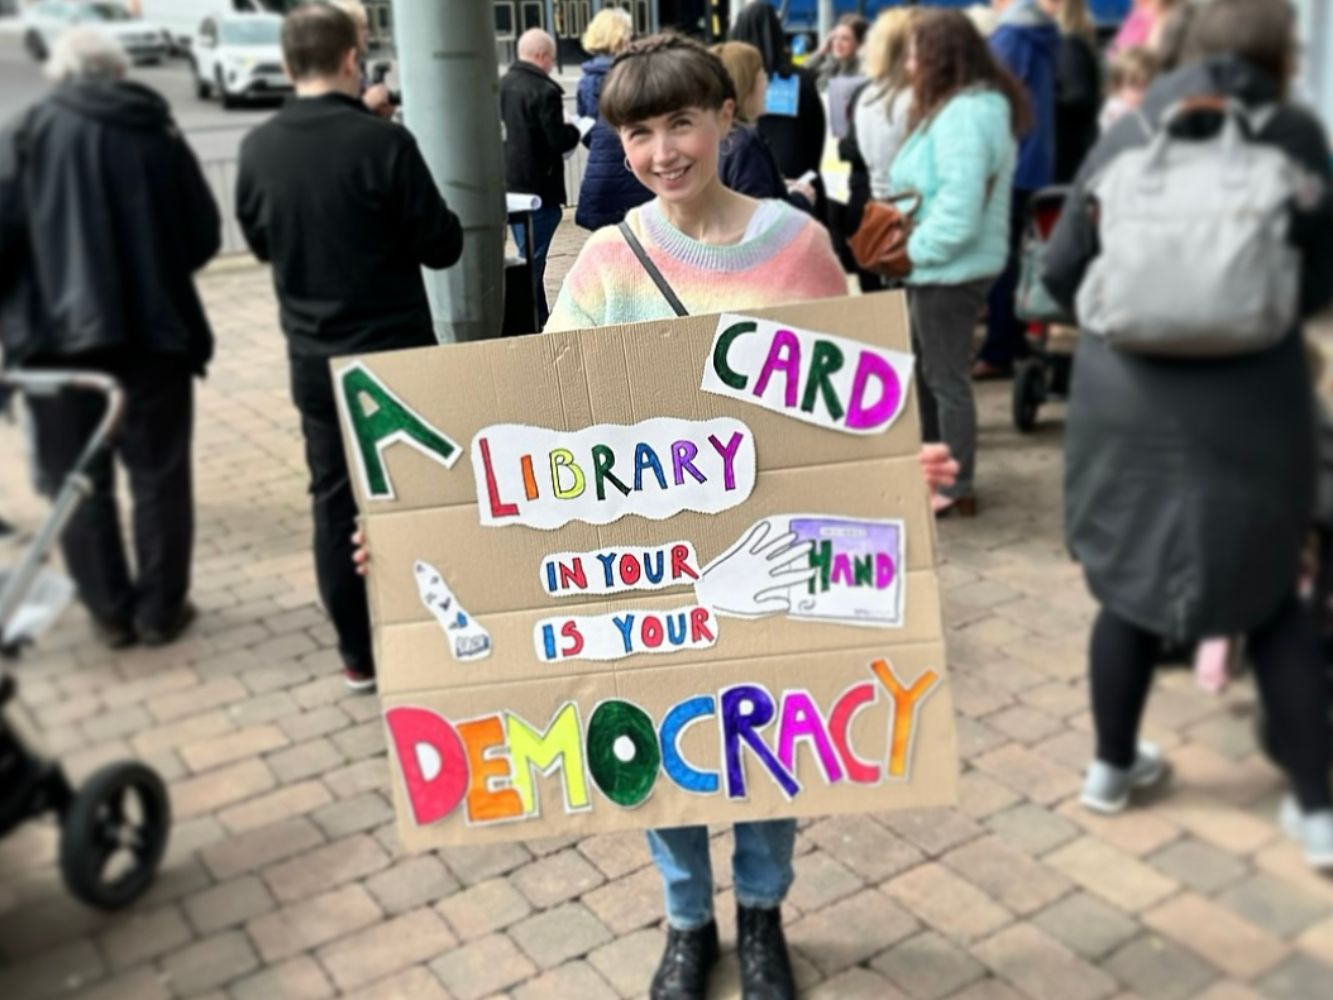 A
CARD
LIBRARY
IN YOUR HAND
IS YOUR
DEMOCRACY